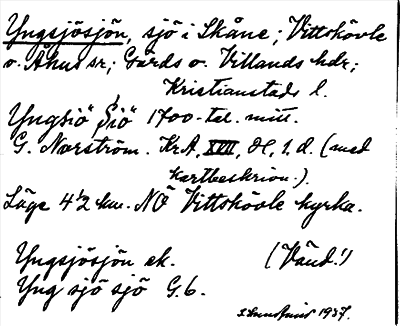 Yngsjösjön, sjö i Skåne; Vittskövle
o. Åhus sr; Gärds o. Villands hdr;
Kristianstads l.
Yngsiö Siö 1700-tal. mitt.
G. Norström. KrA, XVII, Sk, 1. d. (med
kartbeskrivn.).
Läge 4½ km. NÖ Vittskövle kyrka.
Yngsjösjön ek. (Vänd!)
Yngsjösjö G.6.
1937.